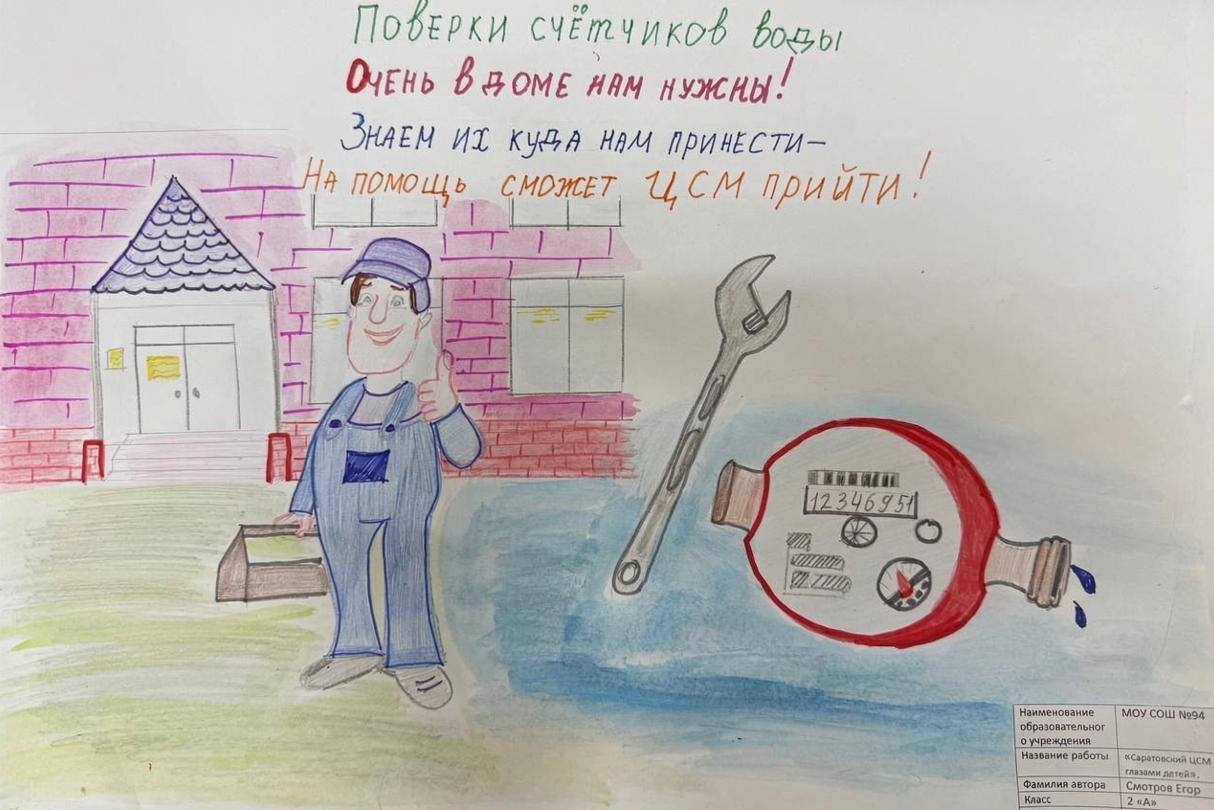 Поверки счётчиков воды
Очень в доме нам нужны!
Знаем их куда нам принести–
На помощь сможет ЦСМ прийти!
12346951
Наименование образовательног о учреждения
МОУ СОШ №94
Название работы
«Саратовский ЦСМ глазами детей».
Фамилия автора
Смотров Егор
Класс
2 «А»